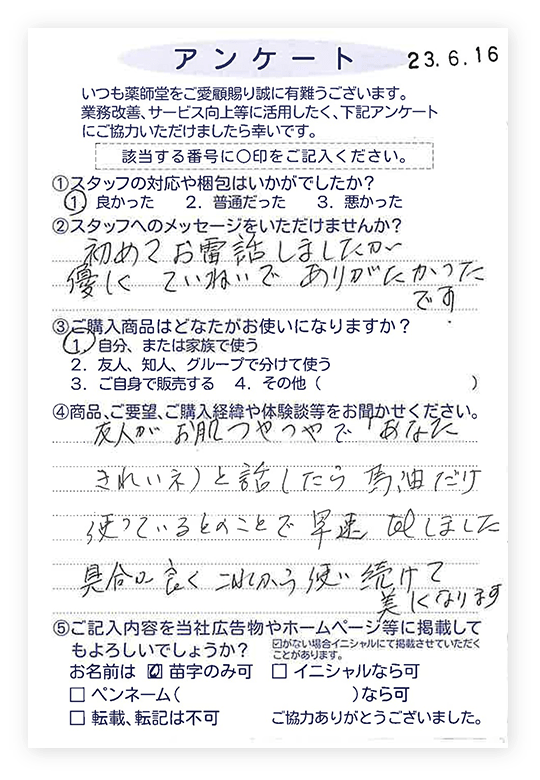 アンケート 23.6.16
いつも薬師堂をご愛顧賜り誠に有難うございます。
業務改善、サービス向上等に活用したく、下記アンケート
にご協力いただけましたら幸いです。
該当する番号に〇印をご記入ください。
①スタッフの対応や梱包はいかがでしたか?
1. 良かった 2. 普通だった 3. 悪かった
②スタッフへのメッセージをいただけませんか?
初めてお電話しましたが
優しく ていねいで ありがたかった
です
③ご購入商品はどなたがお使いになりますか?
1. 自分、または家族で使う
2. 友人、知人、グループで分けて使う
3. ご自身で販売する 4. その他( )
④商品、ご要望、ご購入経緯や体験談等をお聞かせください。
友人が お肌つやつやで「あなた
きれいネ」と話したら 馬油だけ
使っているとのことで 早速 telしました
具合の良く これから使い続けて
美になります
⑤ご記入内容を当社広告物やホームページ等に掲載して
もよろしいでしょうか? ☑がない場合イニシャルにて掲載させていただく
ことがあります。
お名前は ☑ 苗字のみ可 □ イニシャルなら可
□ ペンネーム( )なら可
□ 転載、転記は不可 ご協力ありがとうございました。